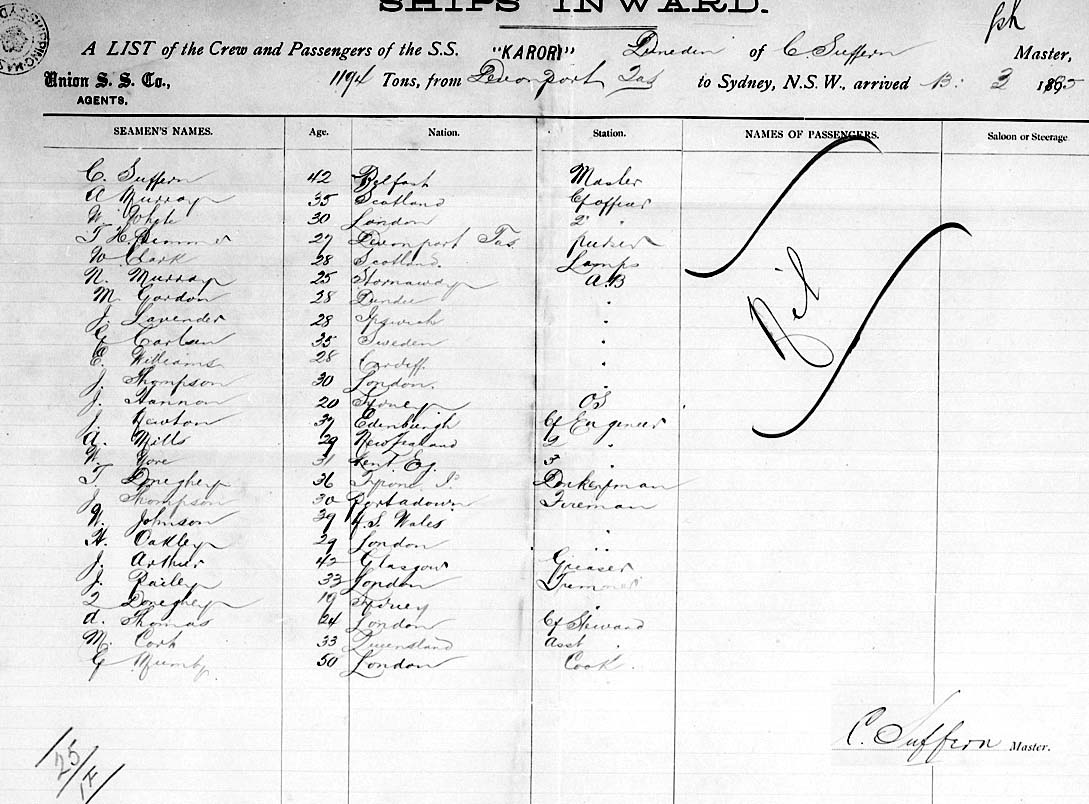 SHIPS INWARD.
A LIST of the Crew and Passengers of the S.S. "KARORI" Dunedin of C. Suffern Master,
Union S. S. Co., 1194 Tons, from Devonport Tas to Sydney, N.S.W., arrived 13: 3 1895
AGENTS.
SEAMEN'S NAMES. Age. Nation. Station. NAMES OF PASSENGERS. Saloon or Steerage
C. Suffern 42 Belfast Master
A Murray 35 Scotland Cf officer
W. 30 London 2 "
T H. 27 Devonport Tas. purser
W Clark 28 Scotland. Lamps
N. Murray 25 Stornaway A.B
M. Gordon 28 Dundee "
J. Lavender 28 Ipswich "
Carlsen 35 Sweden "
E. Williams 28 Cardiff. "
J. Thompson 30 London. "
J. Hannon 20 Sydney OS
J. Newton 37 Edinburgh Cf Engineer
A. Mills 29 New Zealand 2 "
W. Gore 31 Kent. Eg. 3 "
T. Doneghey 36 Donkeyman
J Thompson 30 Portadown Fireman
W. Johnson 39 N.S. Wales "
H. Oakley 29 London "
J. Arthur 42 Glasgow Greaser
J. Bailey 33 London Trimmer
Doneghey 19 Sydney "
A. Thomas 24 London Cf Steward
M. Cork 33 Queensland Asst "
G Mumby. 50 London Cook.
Nil
C. Suffern Master.
25/14/